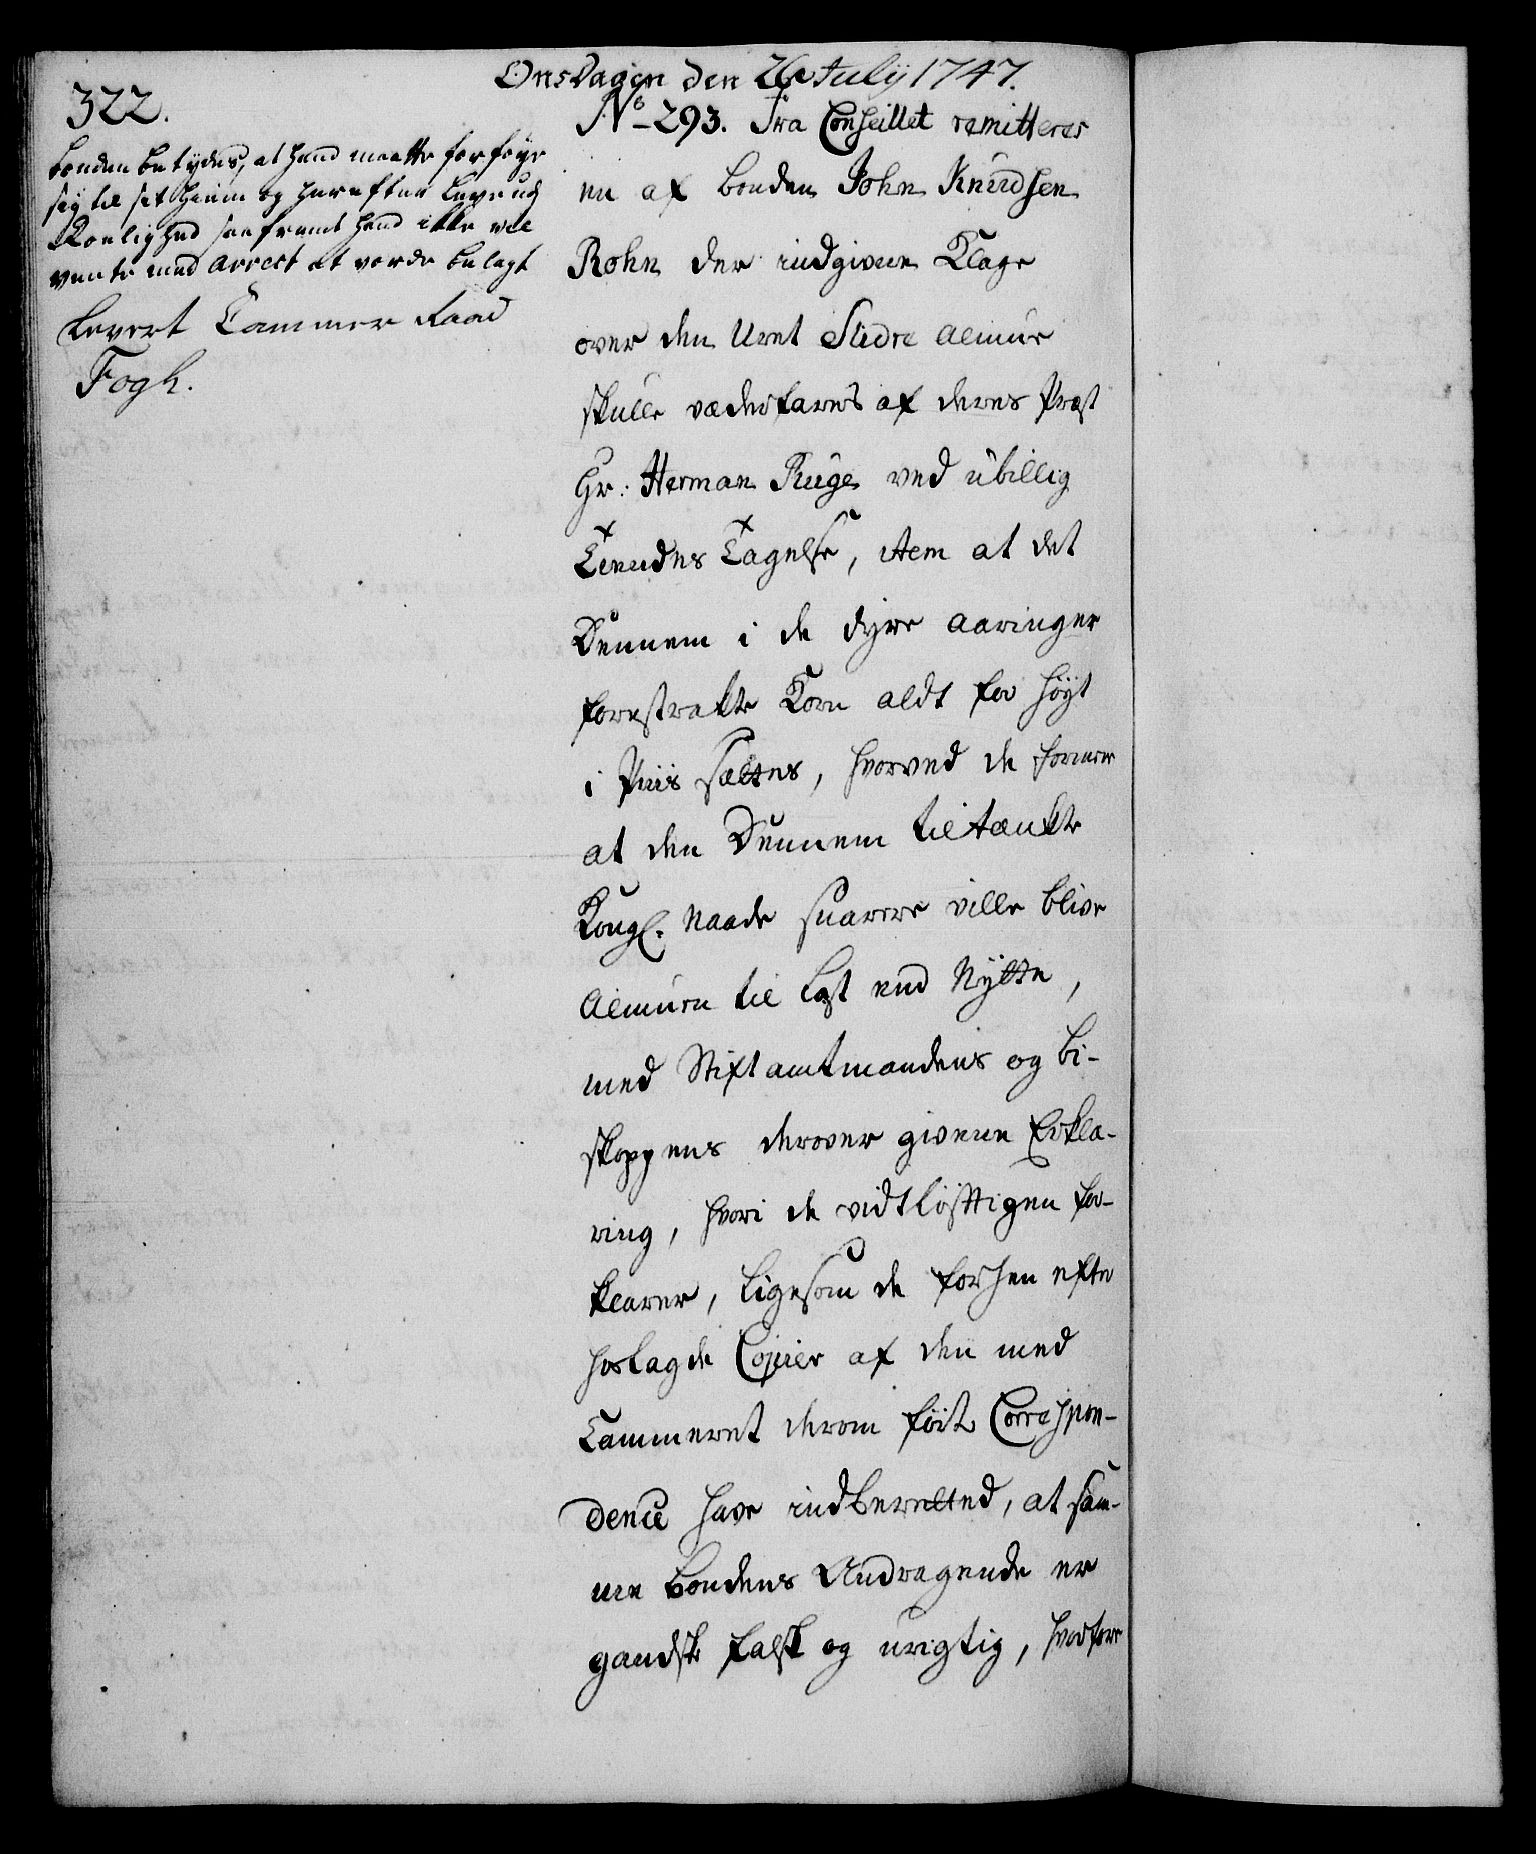 Onsdagen den 26 July 1747.
322.
bonden betydes, at hand maatte forføye
sig til sit hiem og herefter leve udj
Roelighed saafremt hand ikke vil
vente med arrest at vorde belagt
Levert Cammer Raad
Fogh.
No 293. Fra Conseillet remitteres
en af bonden John Knudsen
Rohn der indgiven Klage
over den Uret Slidre Almue
skulle vederfares af deres Præst
Hr: Herman Ruge ved ubillig
Tiendes Tagelse, item at det
Dennem i de dyre aaringer
forestrakte Korn aldt for høyt
i Priis sættes, hvorved de formener
at den Dennem tiltænkte
Kongl. Naade snarere ville blive
Almuen til Last end Nytte,
med Stiftamtmandens og bi-
skoppens derover givene Erklæ-
ring, hvori de vidtløftigen for-
klarer, ligesom de forhen efter
hoslagde Copier af den med
Cammeret derom førte Correspon-
dence have indberetted, at sam-
me bondens Andragende er
gandske falsk og urigtig, hvorfore